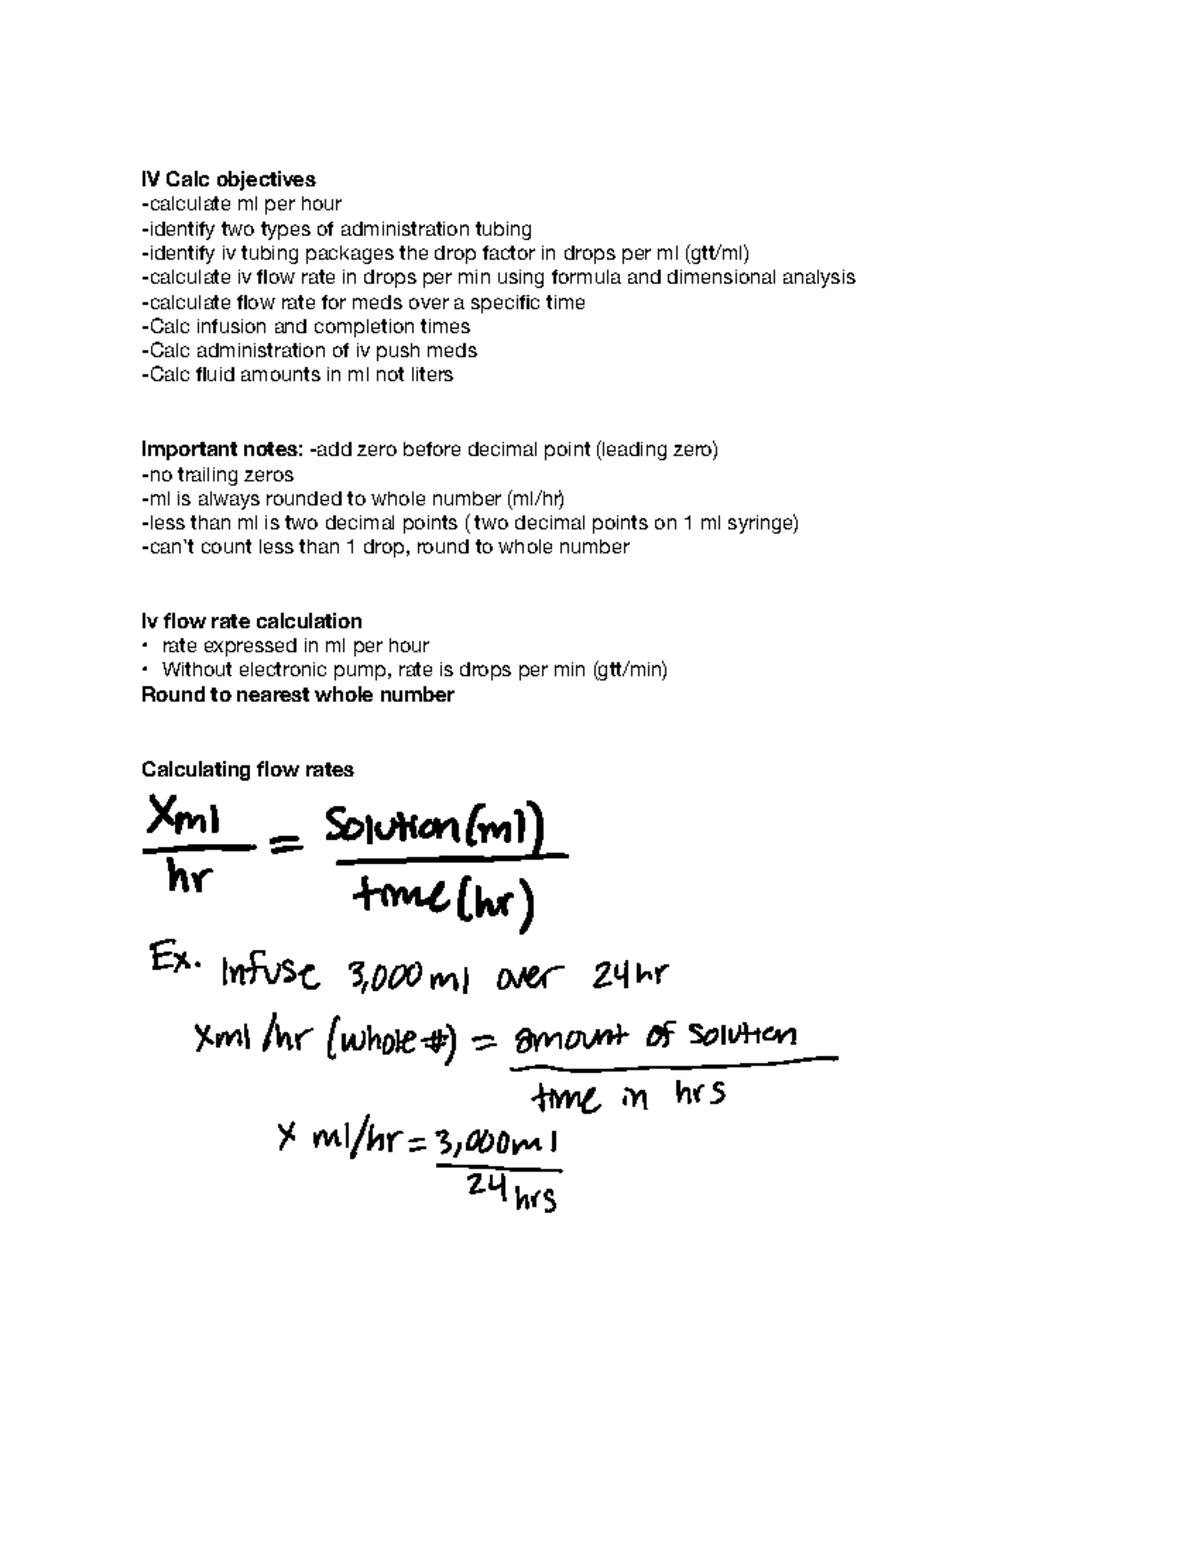 IV Calc objectives
-calculate ml per hour
-identify two types of administration tubing
-identify iv tubing packages the drop factor in drops per ml (gtt/ml)
-calculate iv flow rate in drops per min using formula and dimensional analysis
-calculate flow rate for meds over a specific time
-Calc infusion and completion times
-Calc administration of iv push meds
-Calc fluid amounts in ml not liters
Important notes: -add zero before decimal point (leading zero)
-no trailing zeros
-ml is always rounded to whole number (ml/hr)
-less than ml is two decimal points ( two decimal points on 1 ml syringe)
-can't count less than 1 drop, round to whole number
Iv flow rate calculation
• rate expressed in ml per hour
• Without electronic pump, rate is drops per min (gtt/min)
Round to nearest whole number
Calculating flow rates
Xml = Solution(ml)
hr time(hr)
Ex. Infuse 3,000 ml over 24 hr
Xml/hr (whole #) = amount of solution
time in hrs
X ml/hr = 3,000ml
24 hrs